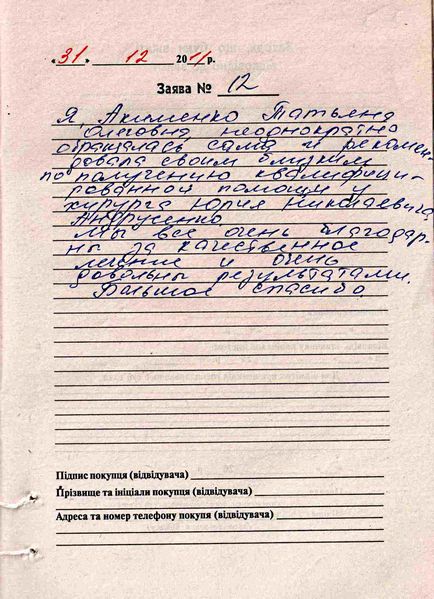 « 31 » 12 2011 р.
Заява № 12
Я, Акименко Татьяна
Олеговна неоднократно
обращалась сама и рекомен-
довала своим близким
по получению квалифици-
рованной помощи у
хирурга Юрия Николаевича
Андрусенко.
Мы все очень благодар-
ны за качественное
лечение и очень
довольны результатами.
Большое спасибо.
Підпис покупця (відвідувача)
Прізвище та ініціали покупця (відвідувача)
Адреса та номер телефону покупя (відвідувача)